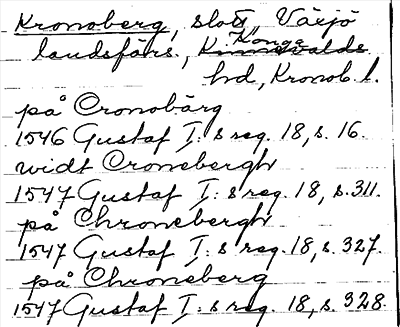 Kronoberg, slott, Växjö
landsförs., Konga
hd, Kronob. l.
på Cronobärg
1546 Gustaf I: s reg. 18, s. 16.
widt Cronebergh
1547 Gustaf I: s reg. 18, s. 311.
på Chronebergh
1547 Gustaf I: s reg. 18, s. 327.
på Chroneberg
1547 Gustaf I: s reg. 18, s. 328